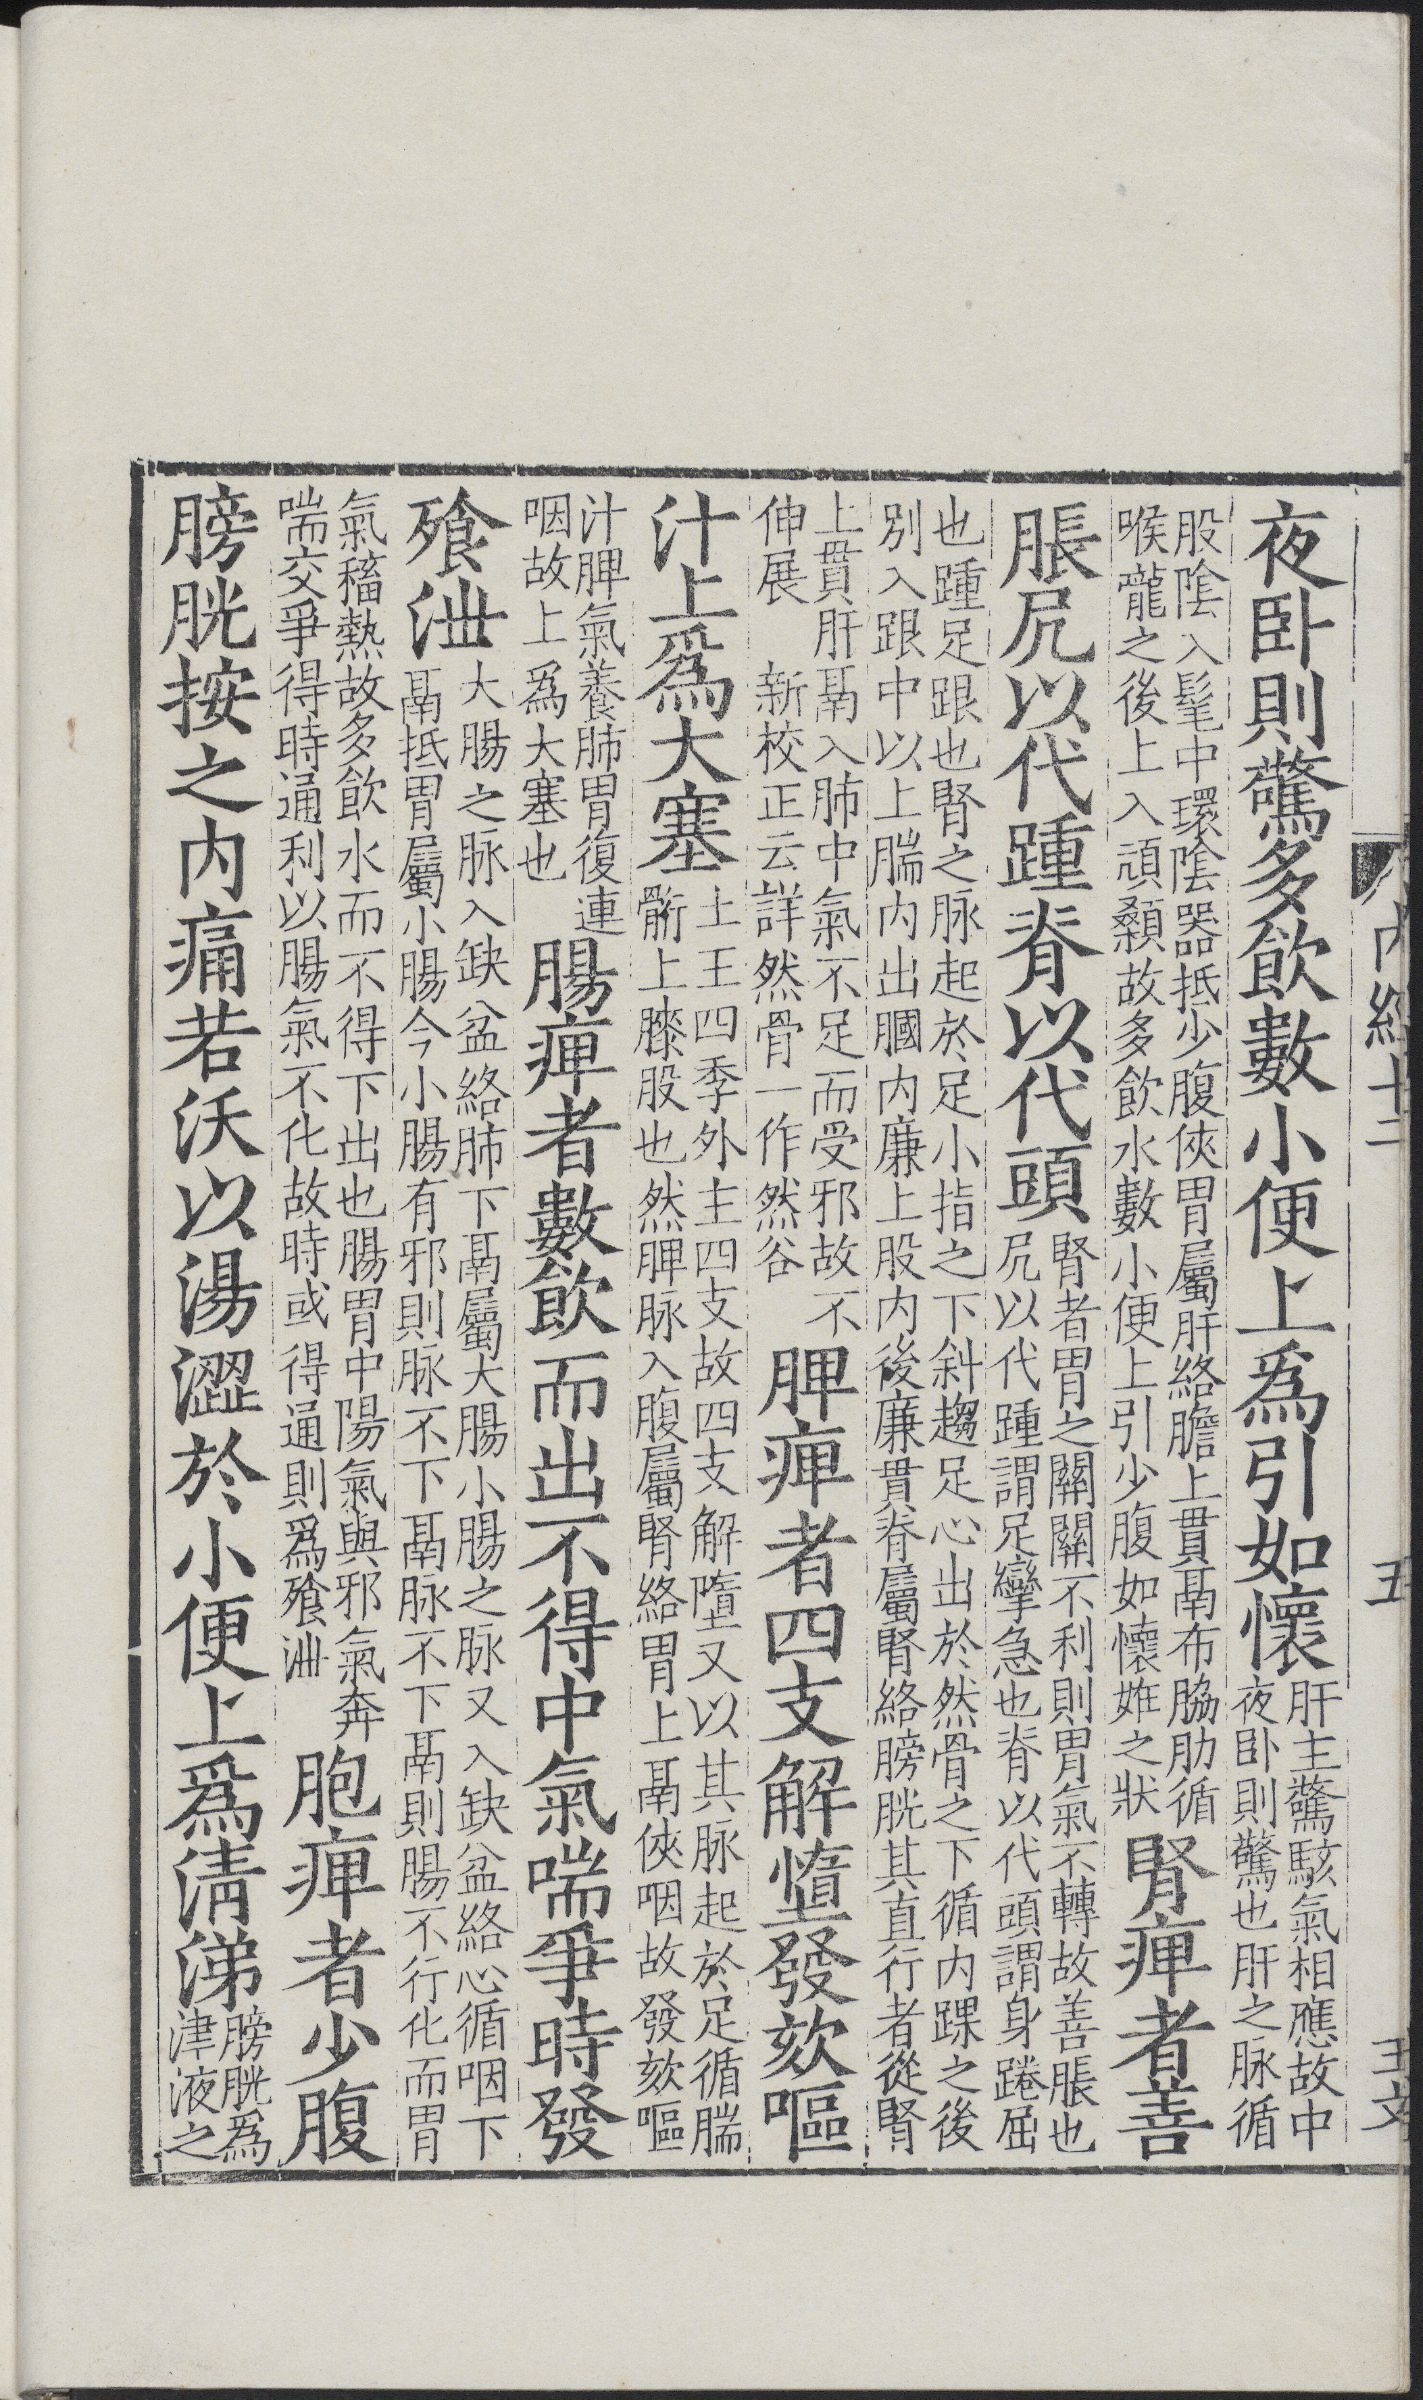 夜卧則驚多飲數小便上爲引如懷
肝主驚駭氣相應故中
夜卧則驚也肝之脉循
股陰入髦中環陰器抵少腹俠胃屬肝絡膽上貫鬲布脇肋循
喉嚨之後上入頏顙故多飲水數小便上引少腹如懷姙之狀
腎痺者善
脹尻以代踵脊以代頭
腎者胃之關關不利則胃氣不轉故善脹也
尻以代踵謂足攣急也脊以代頭謂身踡屈
也踵足跟也腎之脉起於足小指之下斜趨足心出於然骨之下循内踝之後
別入跟中以上腨内出膕内廉上股内後廉貫脊屬腎絡膀胱其直行者從腎
上貫肝鬲入肺中氣不足而受邪故不
伸展 新校正云詳然骨一作然谷
脾痺者四支解墯發欬嘔
汁上爲大塞
土王四季外主四支故四支解墮又以其脉起於足循腨
䯒上膝股也然脾脉入腹屬腎絡胃上鬲俠咽故發欬嘔
汁脾氣養肺胃復連
咽故上爲大塞也
腸痺者數飲而出不得中氣喘爭時發
飱泄
大腸之脉入缺盆絡肺下鬲屬大腸小腸之脉又入缺盆絡心循咽下
鬲抵胃屬小腸今小腸有邪則脉不下鬲脉不下鬲則腸不行化而胃
氣稸熱故多飲水而不得下出也腸胃中陽氣與邪氣奔
喘交爭得時通利以腸氣不化故時或得通則爲飱泄
胞痺者少腹
膀胱按之内痛若沃以湯澀於小便上爲清涕
膀胱爲
津液之
内經十二
五
王文